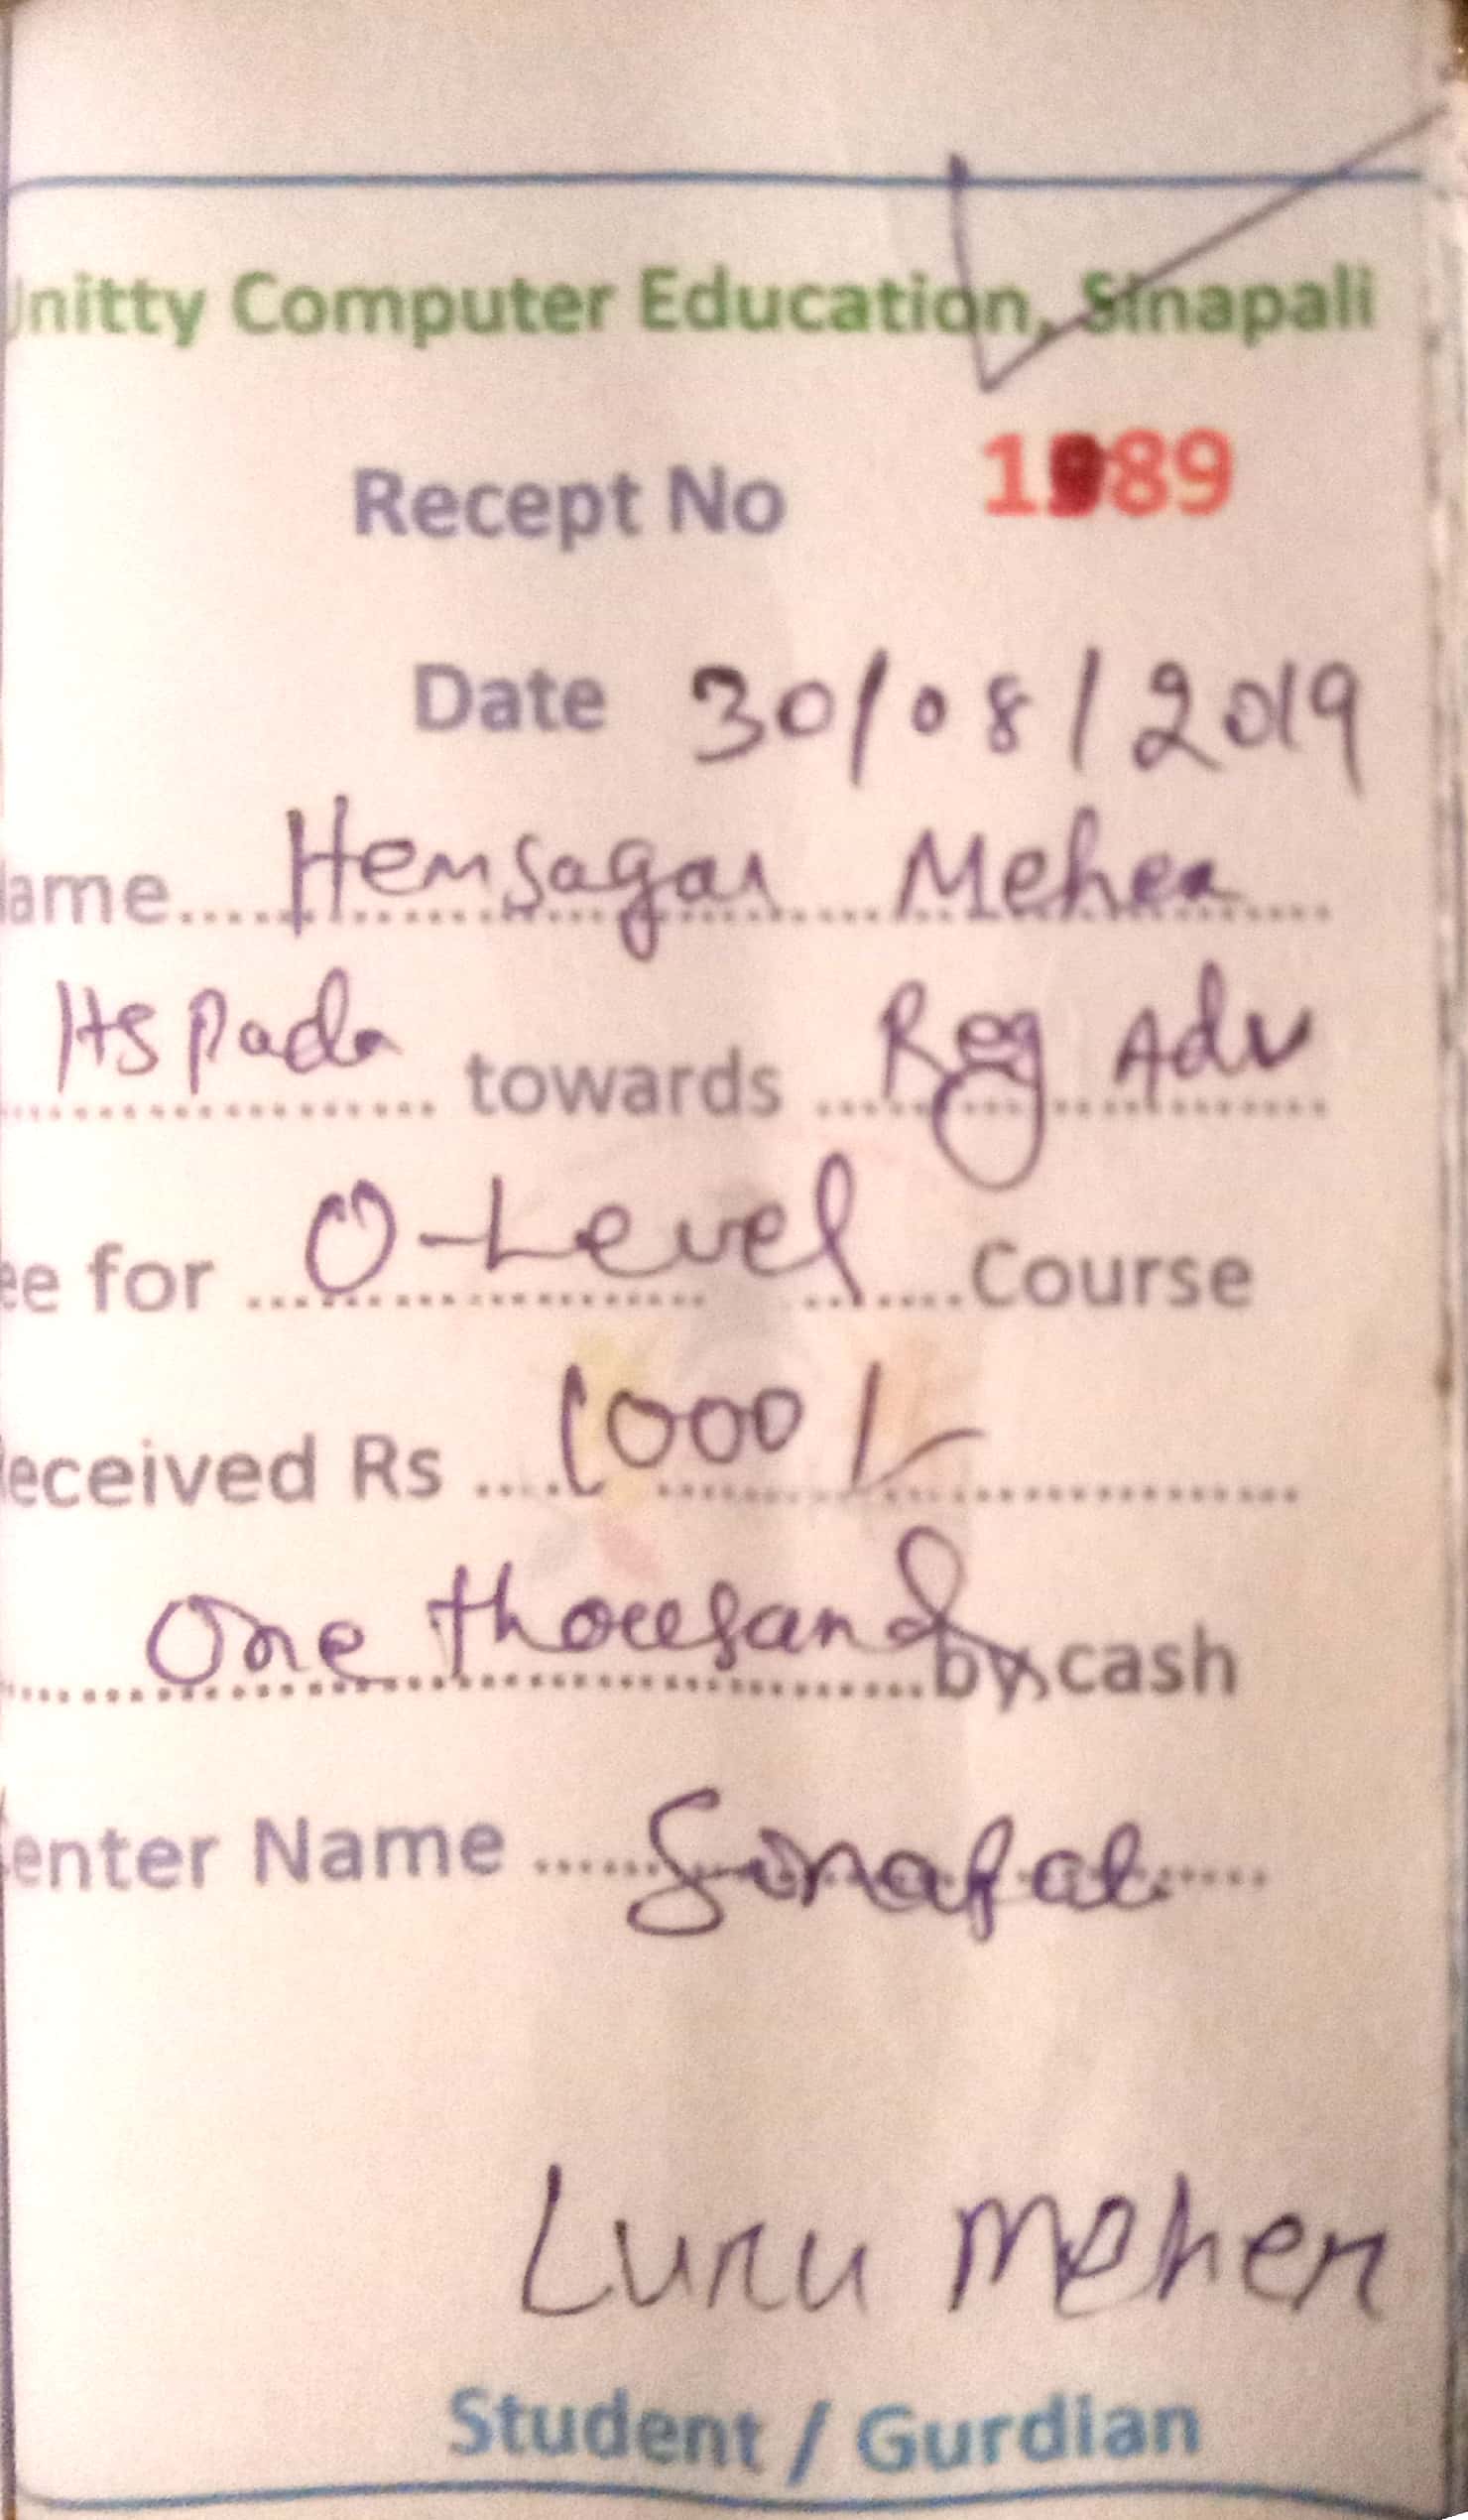 Unitty Computer Education, Sinapali
Recept No 1989
Date 30/08/2019
ame.... Hemsagar Meher
HS Pada towards Reg Adv
ee for O-Level Course
eceived Rs 1000/-
One thousand by cash
enter Name Sinapali
Luru Meher
Student / Gurdian